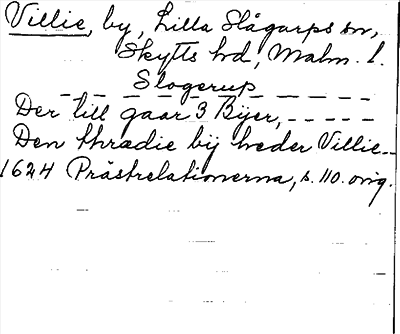 Villie, by, Lilla Slågarps sn,
Skytts hd, Malm. l.
_ _ _ Slogerup _ _ _ _ _
Der till gaar 3 Byer, _ _ _ _ _
Den thrædie bÿ heder Villie._
1624 Prästrelationerna, s. 110. orig.